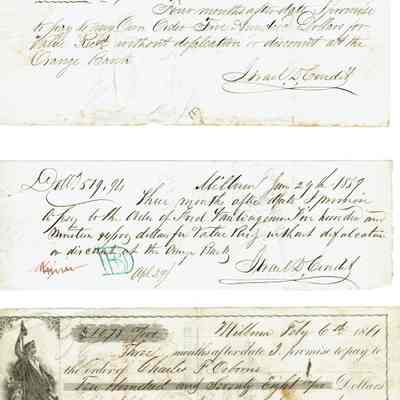 Four months after date I promise
to pay to my Own Order Five Hundred Dollars for
Value Recd without defalcation or discount at the
Orange Bank
Israel D. Condit
Dolls. 519.94 Millburn Jan 29th 1859
Three months after date I promise
to pay to the Order of Five hundred and
Nineteen 94/100 dollars for Value Recd without defalcation
or discount at the Orange Bank
Apl 29
Israel D. Condit
Millburn Feby 6th 1861
Three months after date I promise to pay to
the order of Charles F. Osborne
Five Hundred and Seventy Eight Dollars